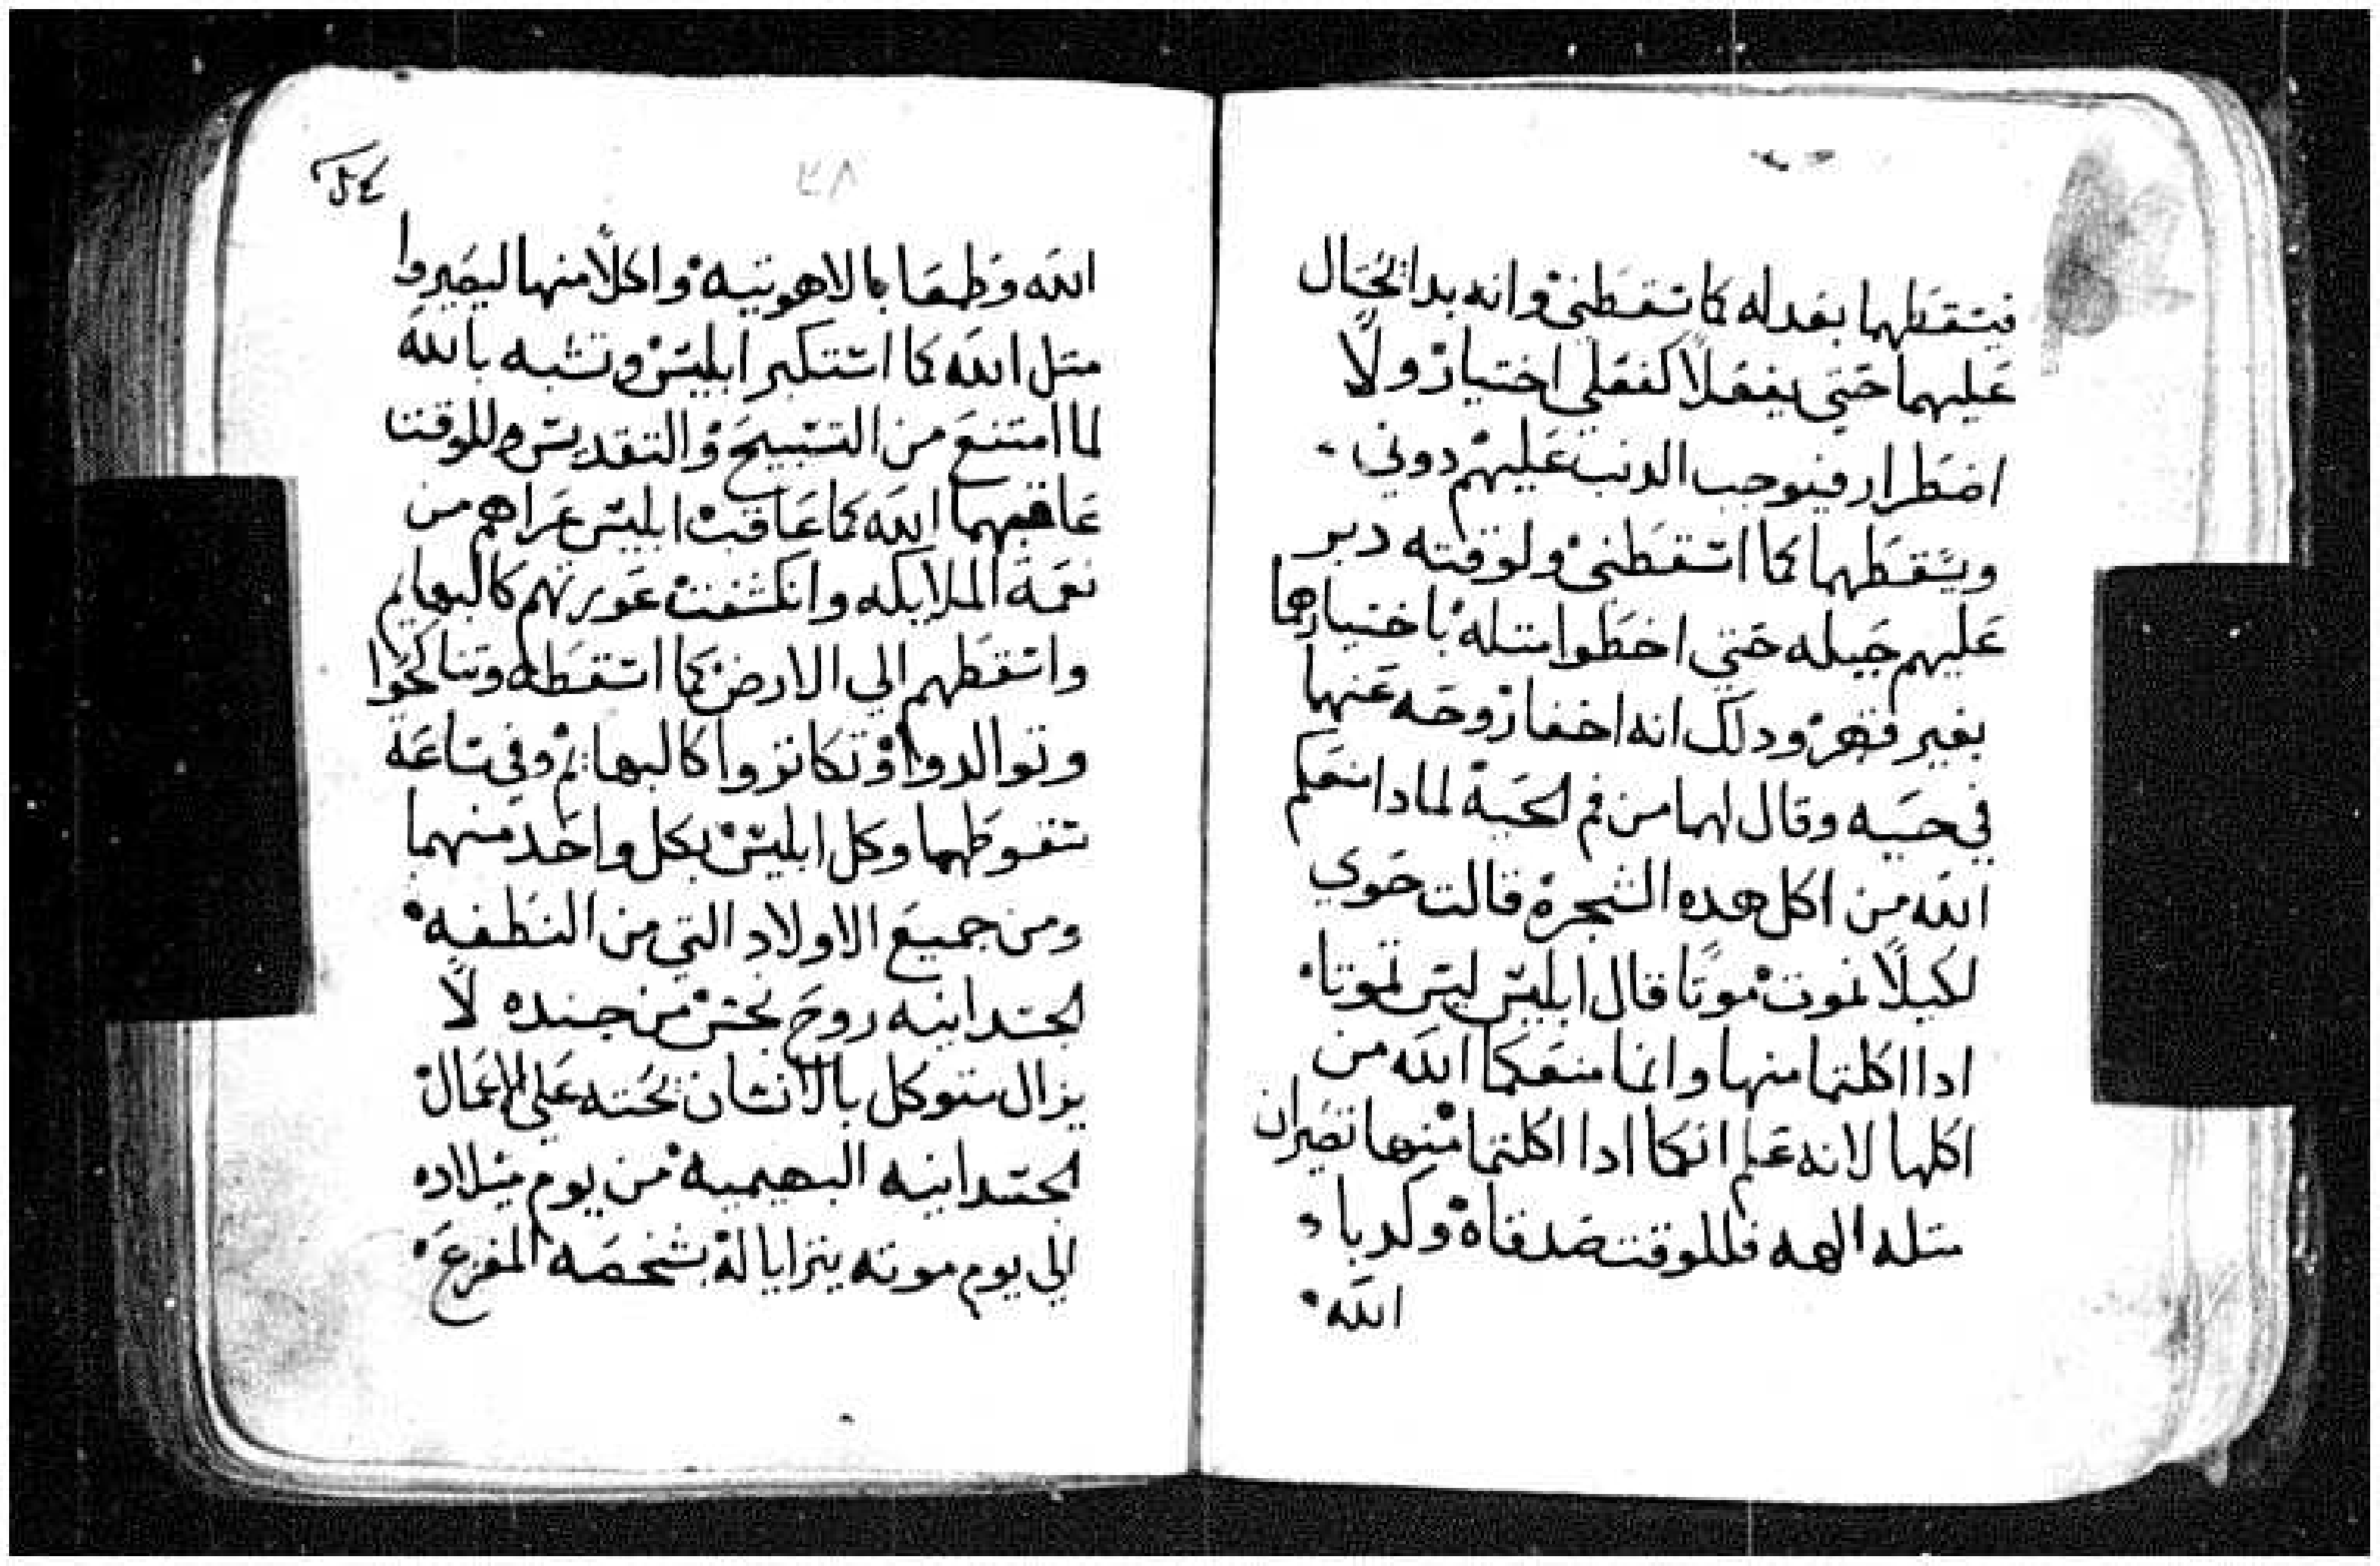 فيتقطهما بعدله كما تقطني وانه بدا الحال
عليهما حتى يفعلا كفعلي اختيار ولا
اضطرار فيوجب الدنب عليهم دوني
ويسقطهما كما اسقطني ولوقته دبر
عليهم حيله حتي اخطوا متله باختيارهما
بغير قهر ودلك انه اخفا روحه عنها
في حيه وقال لهما من فم الحية لمادا منعكم
الله من اكل هده الشجرة قالت حوي
لكيلا نموت موتا قال ابليس ليس تموتا
ادا اكلتما منها وانما منعكما الله من
اكلها لانه علم انكما ادا اكلتما منها تصيران
متله الهه فللوقت صدقاه وكدبا
الله
٢٨
الله وطمعا بالاهوتيه واكلا منها ليصيروا
متل الله كما استكبر ابليس وتشبه بالله
لما امتنع من التسبيح والتقديس وللوقت
عاقبهما الله كما عاقب ابليس عراهم من
نعمة الملايكه وانكشفت عورتهم كالبهايم
واسقطهم الي الارض كما اسقطه وتناكحوا
وتوالدوا وتكاتروا كالبهايم وفي ساعة
سقوطهما وكل ابليس بكل واحد منهما
ومن جميع الاولاد التي من النطفه
الجسدانيه روح نجس من جنده لا
يزال متوكل بالانسان تحته علي الاعمال
الجسدانيه البهيميه من يوم ميلاده
الي يوم موته يترايا له بشخصه المفزع